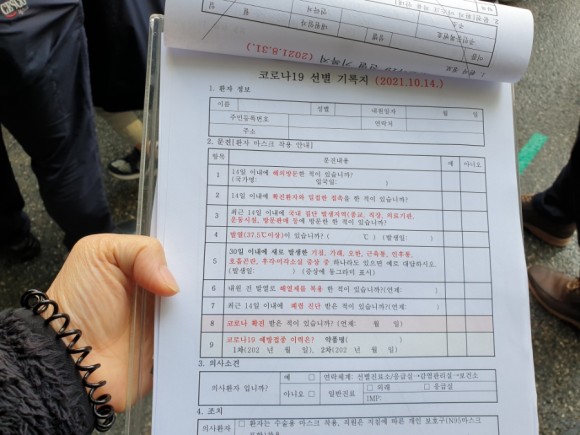 코로나19 선별 기록지 (2021.10.14.)
1. 환자 정보
이름 성별 내원일자 월 일
주민등록번호 연락처
주소
2. 문진[환자 마스크 착용 안내]
항목 문진내용 예 아니오
1 14일 이내에 해외방문한 적이 있습니까?
(국가명: 입국일: )
2 14일 이내에 확진환자와 밀접한 접촉을 한 적이 있습니까?
3 최근 14일 이내에 국내 집단 발생지역(종교, 직장, 의료기관,
운동시설, 방문판매 등)에 방문한 적이 있습니까?
4 발열(37.5℃이상)이 있습니까? ( ℃ ) (발생일: )
5 30일 이내에 새로 발생한 기침, 가래, 오한, 근육통, 인후통,
호흡곤란, 후각·미각소실 증상 중 하나라도 있으면 예로 대답하시오.
(발생일: ) (증상에 동그라미 표시)
6 내원 전 발열로 해열제를 복용 한 적이 있습니까?(언제: )
7 최근 14일 이내에 폐렴 진단 받은 적이 있습니까?(언제: )
8 코로나 확진 받은 적이 있습니까? (언제: 월 일)
9 코로나19 예방접종 이력은? 약품명( )
1차(202 년 월 일), 2차(202 년 월 일)
3. 의사소견
의사환자 입니까? 예 □ 연락체계: 선별진료소/응급실→감염관리실→보건소
아니오 □ 일반진료 □ 외래 □ 응급실
IMP:
4. 조치
의사환자 □ 환자는 수술용 마스크 착용, 직원은 지침에 따른 개인 보호구(N95마스크